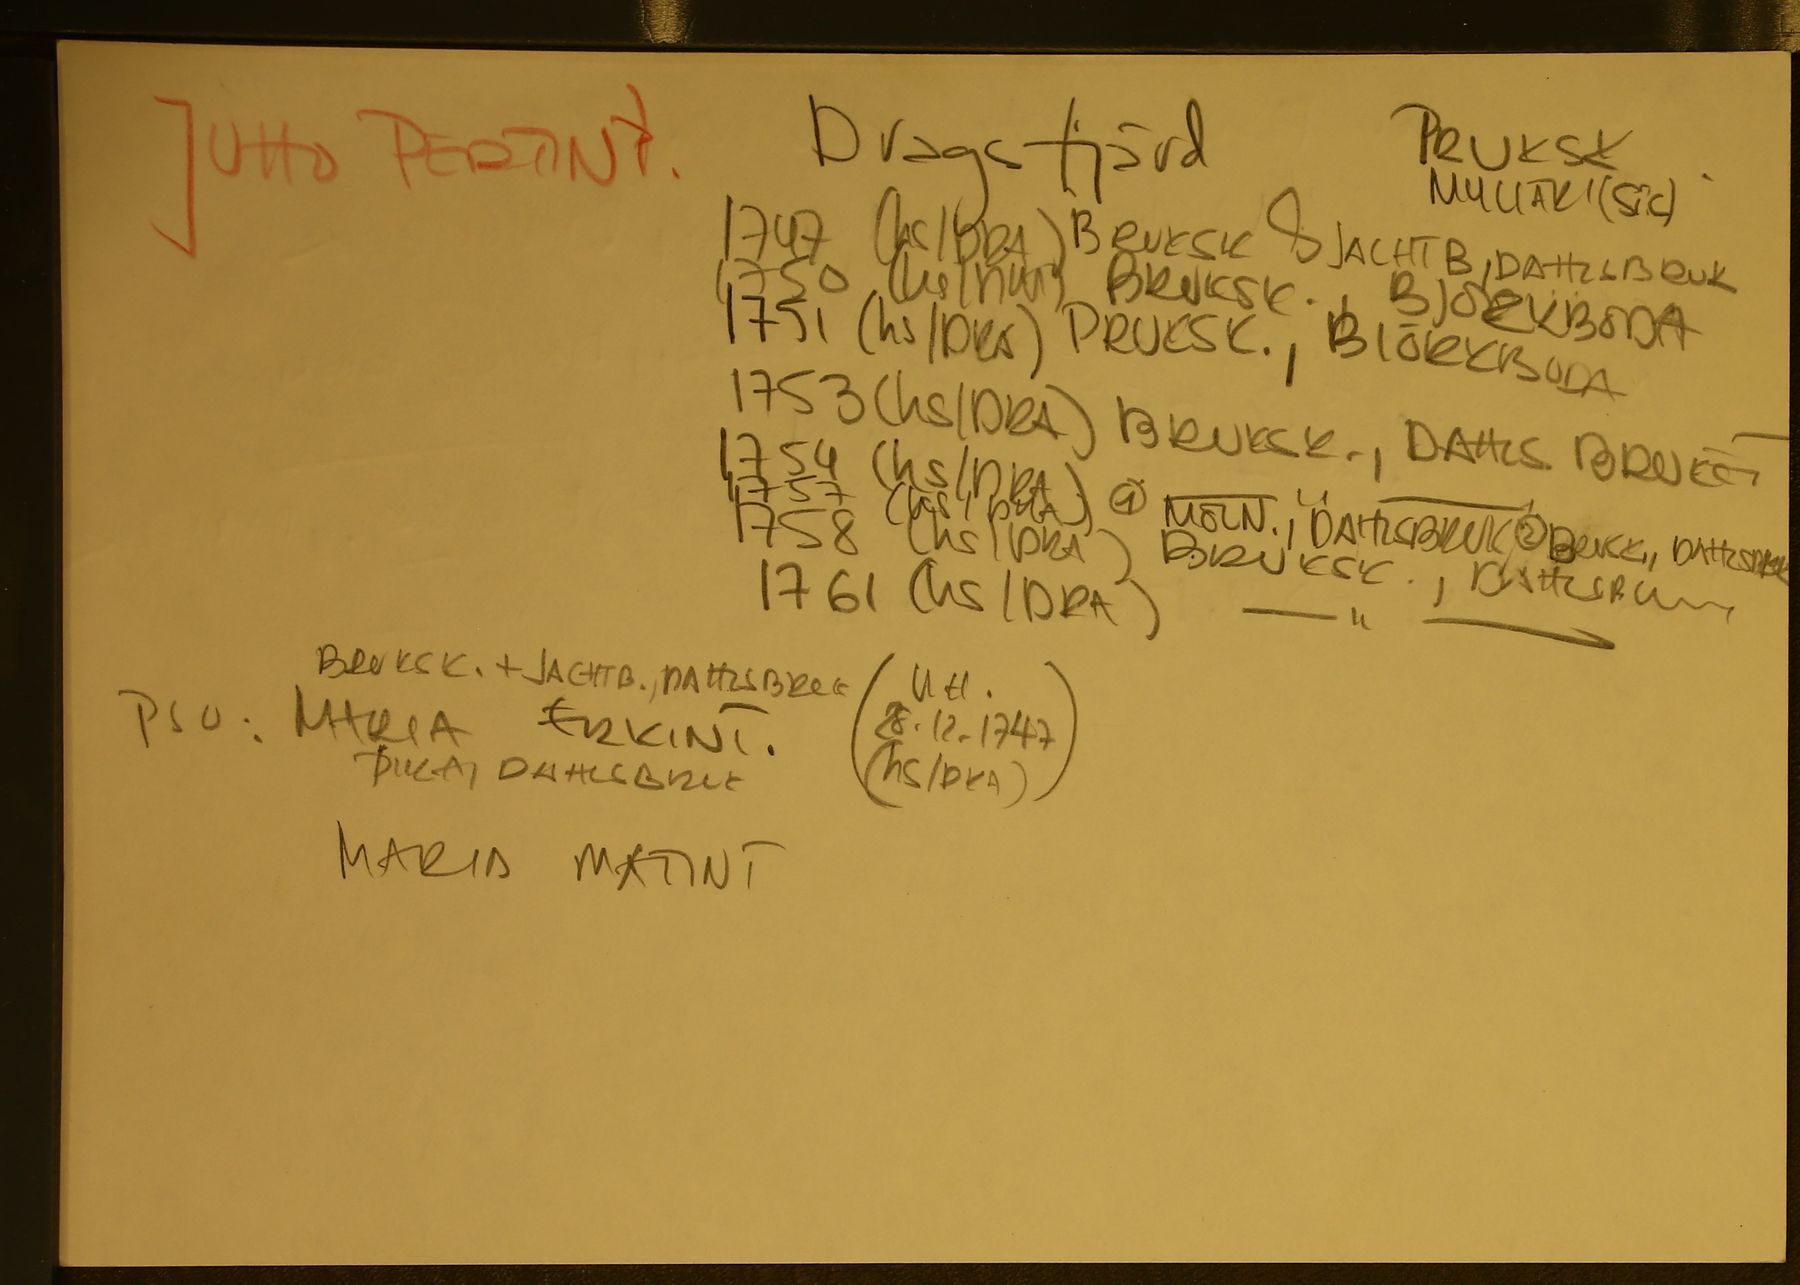 JUHO PERTINT. Dragsfjärd PRUKSK
MYLLÄRI (sic)
1747 (hs/DRA) BRUKSK & JACHTB, DAHLSBRUK
1750 (hs/DRA) BRUKSK., BJÖRKBODA
1751 (hs/DRA) PRUKSK., BIÖRKBODA
1753 (hs/DRA) BRUKSK., DAHLS BRUKET
1754 (hs/DRA)
1757 (hs/DRA) ① MÖLN., DAHLSBRUK ② BRUKSK., DAHLSBRUK
1758 (hs/DRA) BRUKSK., DAHLSBRUK
1761 (hs/DRA) —— " ——
BRUKSK. + JACHTB., DAHLSBRUK
PSO: MARIA ERKINT. (VIH. 28.12.1747 (hs/DRA))
PIKA, DAHLSBRUK
MARIA MATINT